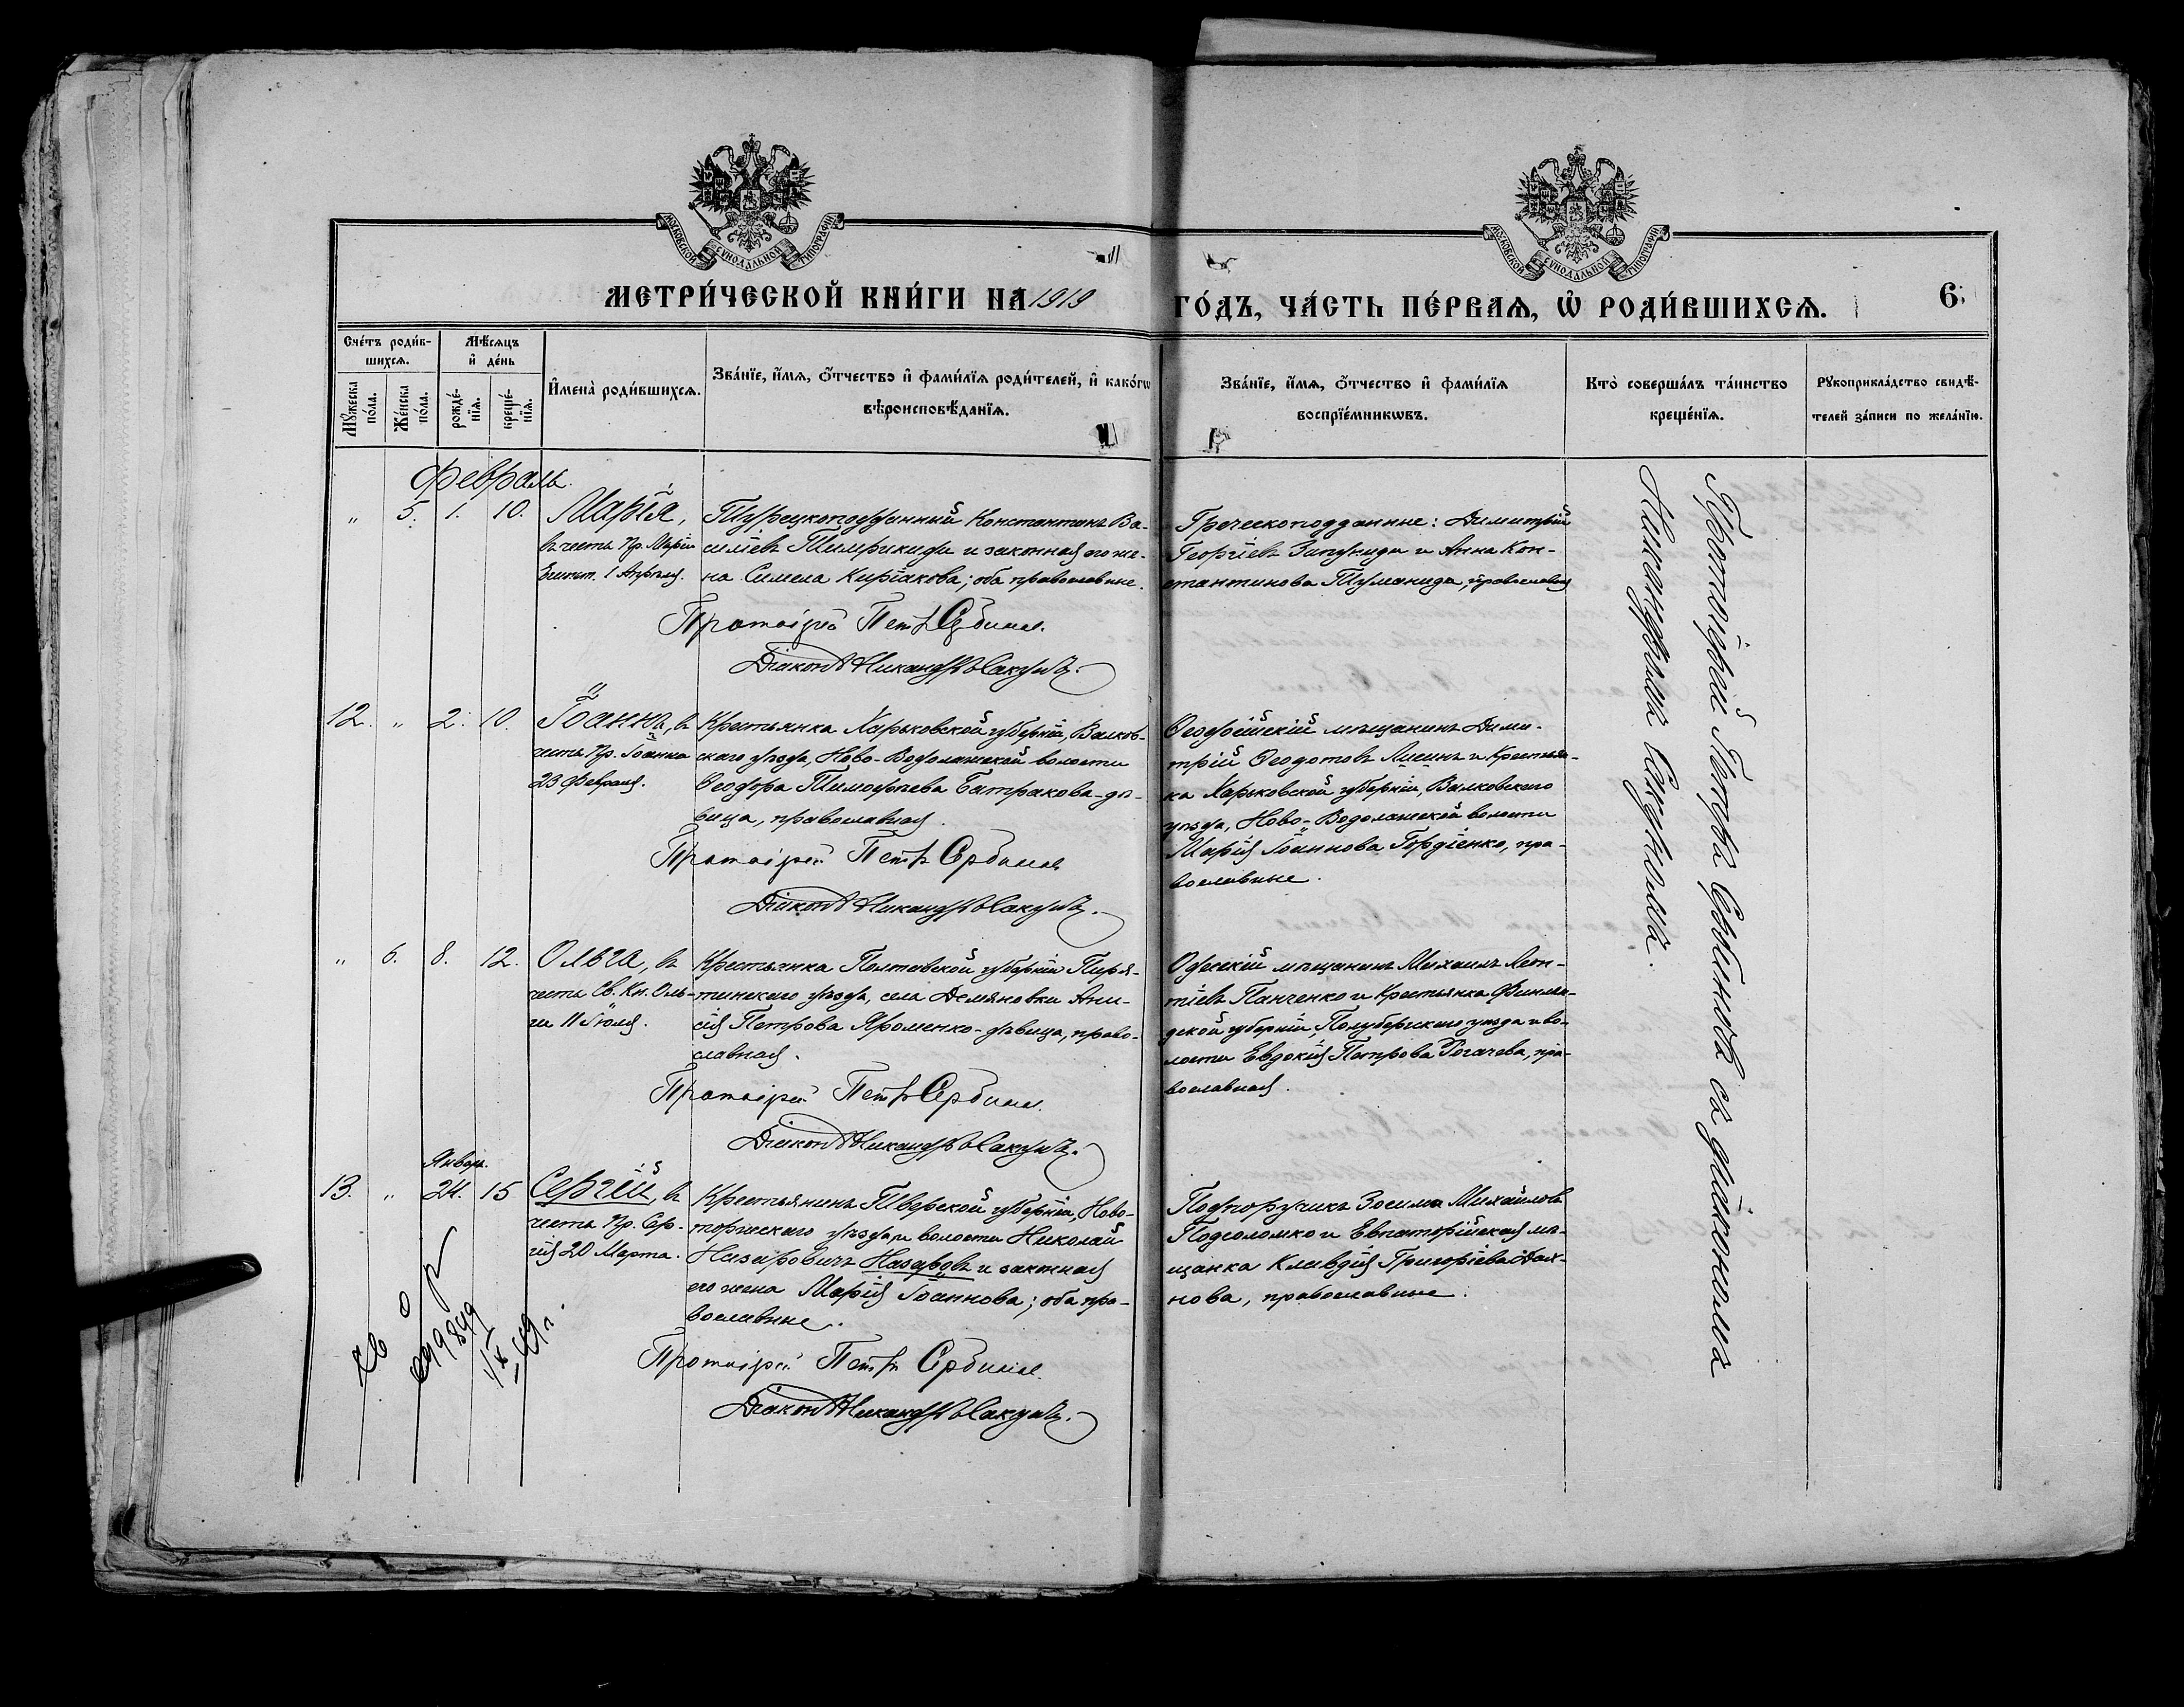 МОСКОВСКОЙ СѴНОДАЛЬНОЙ ТИПОГРАФІИ
МОСКОВСКОЙ СѴНОДАЛЬНОЙ ТИПОГРАФІИ
МЕТРИ́ЧЕСКОЙ КНИ́ГИ НА 1919 ГО́ДЪ, ЧА́СТЬ ПЕ́РВАѦ, Ѡ҆ РОДИ́ВШИХСѦ.
6
Сче́тъ роди́в-
шихсѧ.
Мѣ́сяцъ
и҆ де́нь
Мꙋ́жеска
по́ла.
Же́нска
по́ла.
рожде́-
нїѧ.
креще́-
нїѧ.
И҆мена̀ роди́вшихсѧ.
Зва́нїе, и҆́мѧ, ѻ҆́тчество и҆ фами́лїѧ роди́телей, и҆ како́гѡ
вѣроисповѣ́данїѧ.
Зва́нїе, и҆́мѧ, ѻ҆́тчество и҆ фами́лїѧ
воспрїе́мникѡвъ.
Кто̀ соверша́лъ та́инство
креще́нїѧ.
Рꙋкоприкла́дство свидѣ́-
телей за́писи по жела́нїю.
Февраль.
" 5. 1. 10.
Марія,
въ честь Пр. Маріи
Египт. 1 Апрѣля.
Турецкоподданный Константинъ Ва-
силіевъ Тимрикиди и законная его же-
на Симела Киріакова; оба православные.
Протоіерей Петръ Сербиновъ
Діаконъ Никандръ Сакунъ.
Греческоподданные: Димитрій
Георгіевъ и Анна Кон-
стантинова Туманиди, православные
12. " 2. 10.
Іоаннъ, въ
честь Пр. Іоанна
23 Февраля.
Крестьянка Харьковской губерніи, Валков-
скаго уѣзда, Ново-Водолажской волости
Ѳеодора Тимоѳеева Батракова-дѣ-
вица, православная.
Протоіерей Петръ Сербиновъ
Діаконъ Никандръ Сакунъ.
Ѳеодосійскій мѣщанинъ Дими-
трій Ѳеодотовъ и Крестьян-
ка Харьковской губерніи, Валковскаго
уѣзда, Ново-Водолажской волости
Марія Іоаннова Гордіенко, пра-
вославные.
" 6. 8. 12.
Ольга, въ
честь Св. Кн. Оль-
ги 11 Іюля.
Крестьянка Полтавской губерніи Пиря-
тинскаго уѣзда, села Демяновки Ани-
сія Петрова Яроменко-дѣвица, право-
славная.
Протоіерей Петръ Сербиновъ
Діаконъ Никандръ Сакунъ.
Одесскій мѣщанинъ Михаилъ Леон-
тіевъ Панченко и Крестьянка Финлян-
дской губерніи, уѣзда и во-
лости Евдокія Петрова Рогачева, пра-
вославная.
Январь.
13. " 24. 15
Сергій, въ
честь Пр. Сер-
гія 20 Марта.
Крестьянинъ Тверской губерніи, Ново-
торжскаго уѣзда и волости Николай
Назаровичъ Назаровъ и законная
его жена Марія Іоаннова; оба пра-
вославные.
Протоіерей Петръ Сербиновъ
Діаконъ Никандръ Сакунъ.
Подпоручикъ Зосима Михайловъ
Подсоломко и Евпаторійская мѣ-
щанка Клавдія Григоріева
нова, православные.
Протоіерей Петръ Сербиновъ съ діакономъ
Никандромъ Сакуномъ.